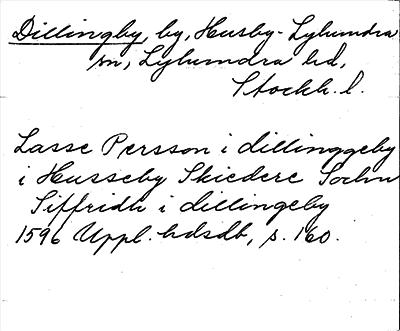 Dillingby, by, Husby-Lyhundra
sn, Lyhundra hd,
Stockh. l.
Lasse Persson i dillinggeby
i Husseby Skiedere Sochn
Siffridh i dillingeby
1596 Uppl. hdsdb, s. 160.